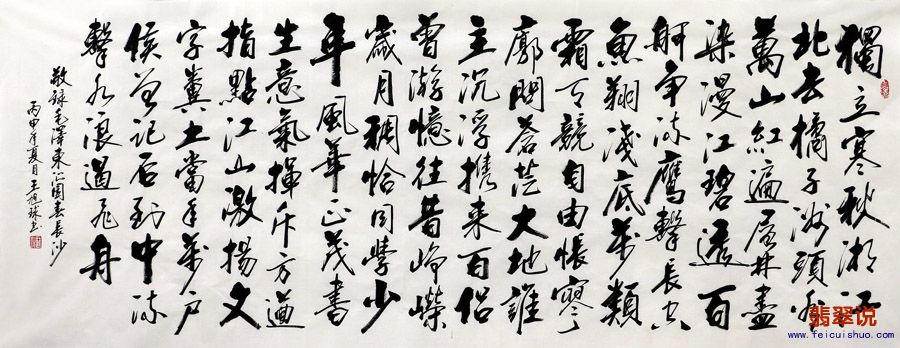 獨立寒秋湘江
北去橘子洲頭看
萬山紅遍層林盡
染漫江碧透百
舸争流鷹擊長空
魚翔淺底萬類
霜天競自由悵寥
廓問蒼茫大地誰
主沉浮携来百侣
曾游憶往昔崢嶸
歲月稠恰同學少
年風華正茂書
生意氣揮斥方遒
指點江山激揚文
字糞土當年萬户
侯曾記否到中流
擊水浪遏飛舟
敬録毛澤東沁園春長沙
丙申年夏月王旭球書
翡翠说
www.feicuishuo.com